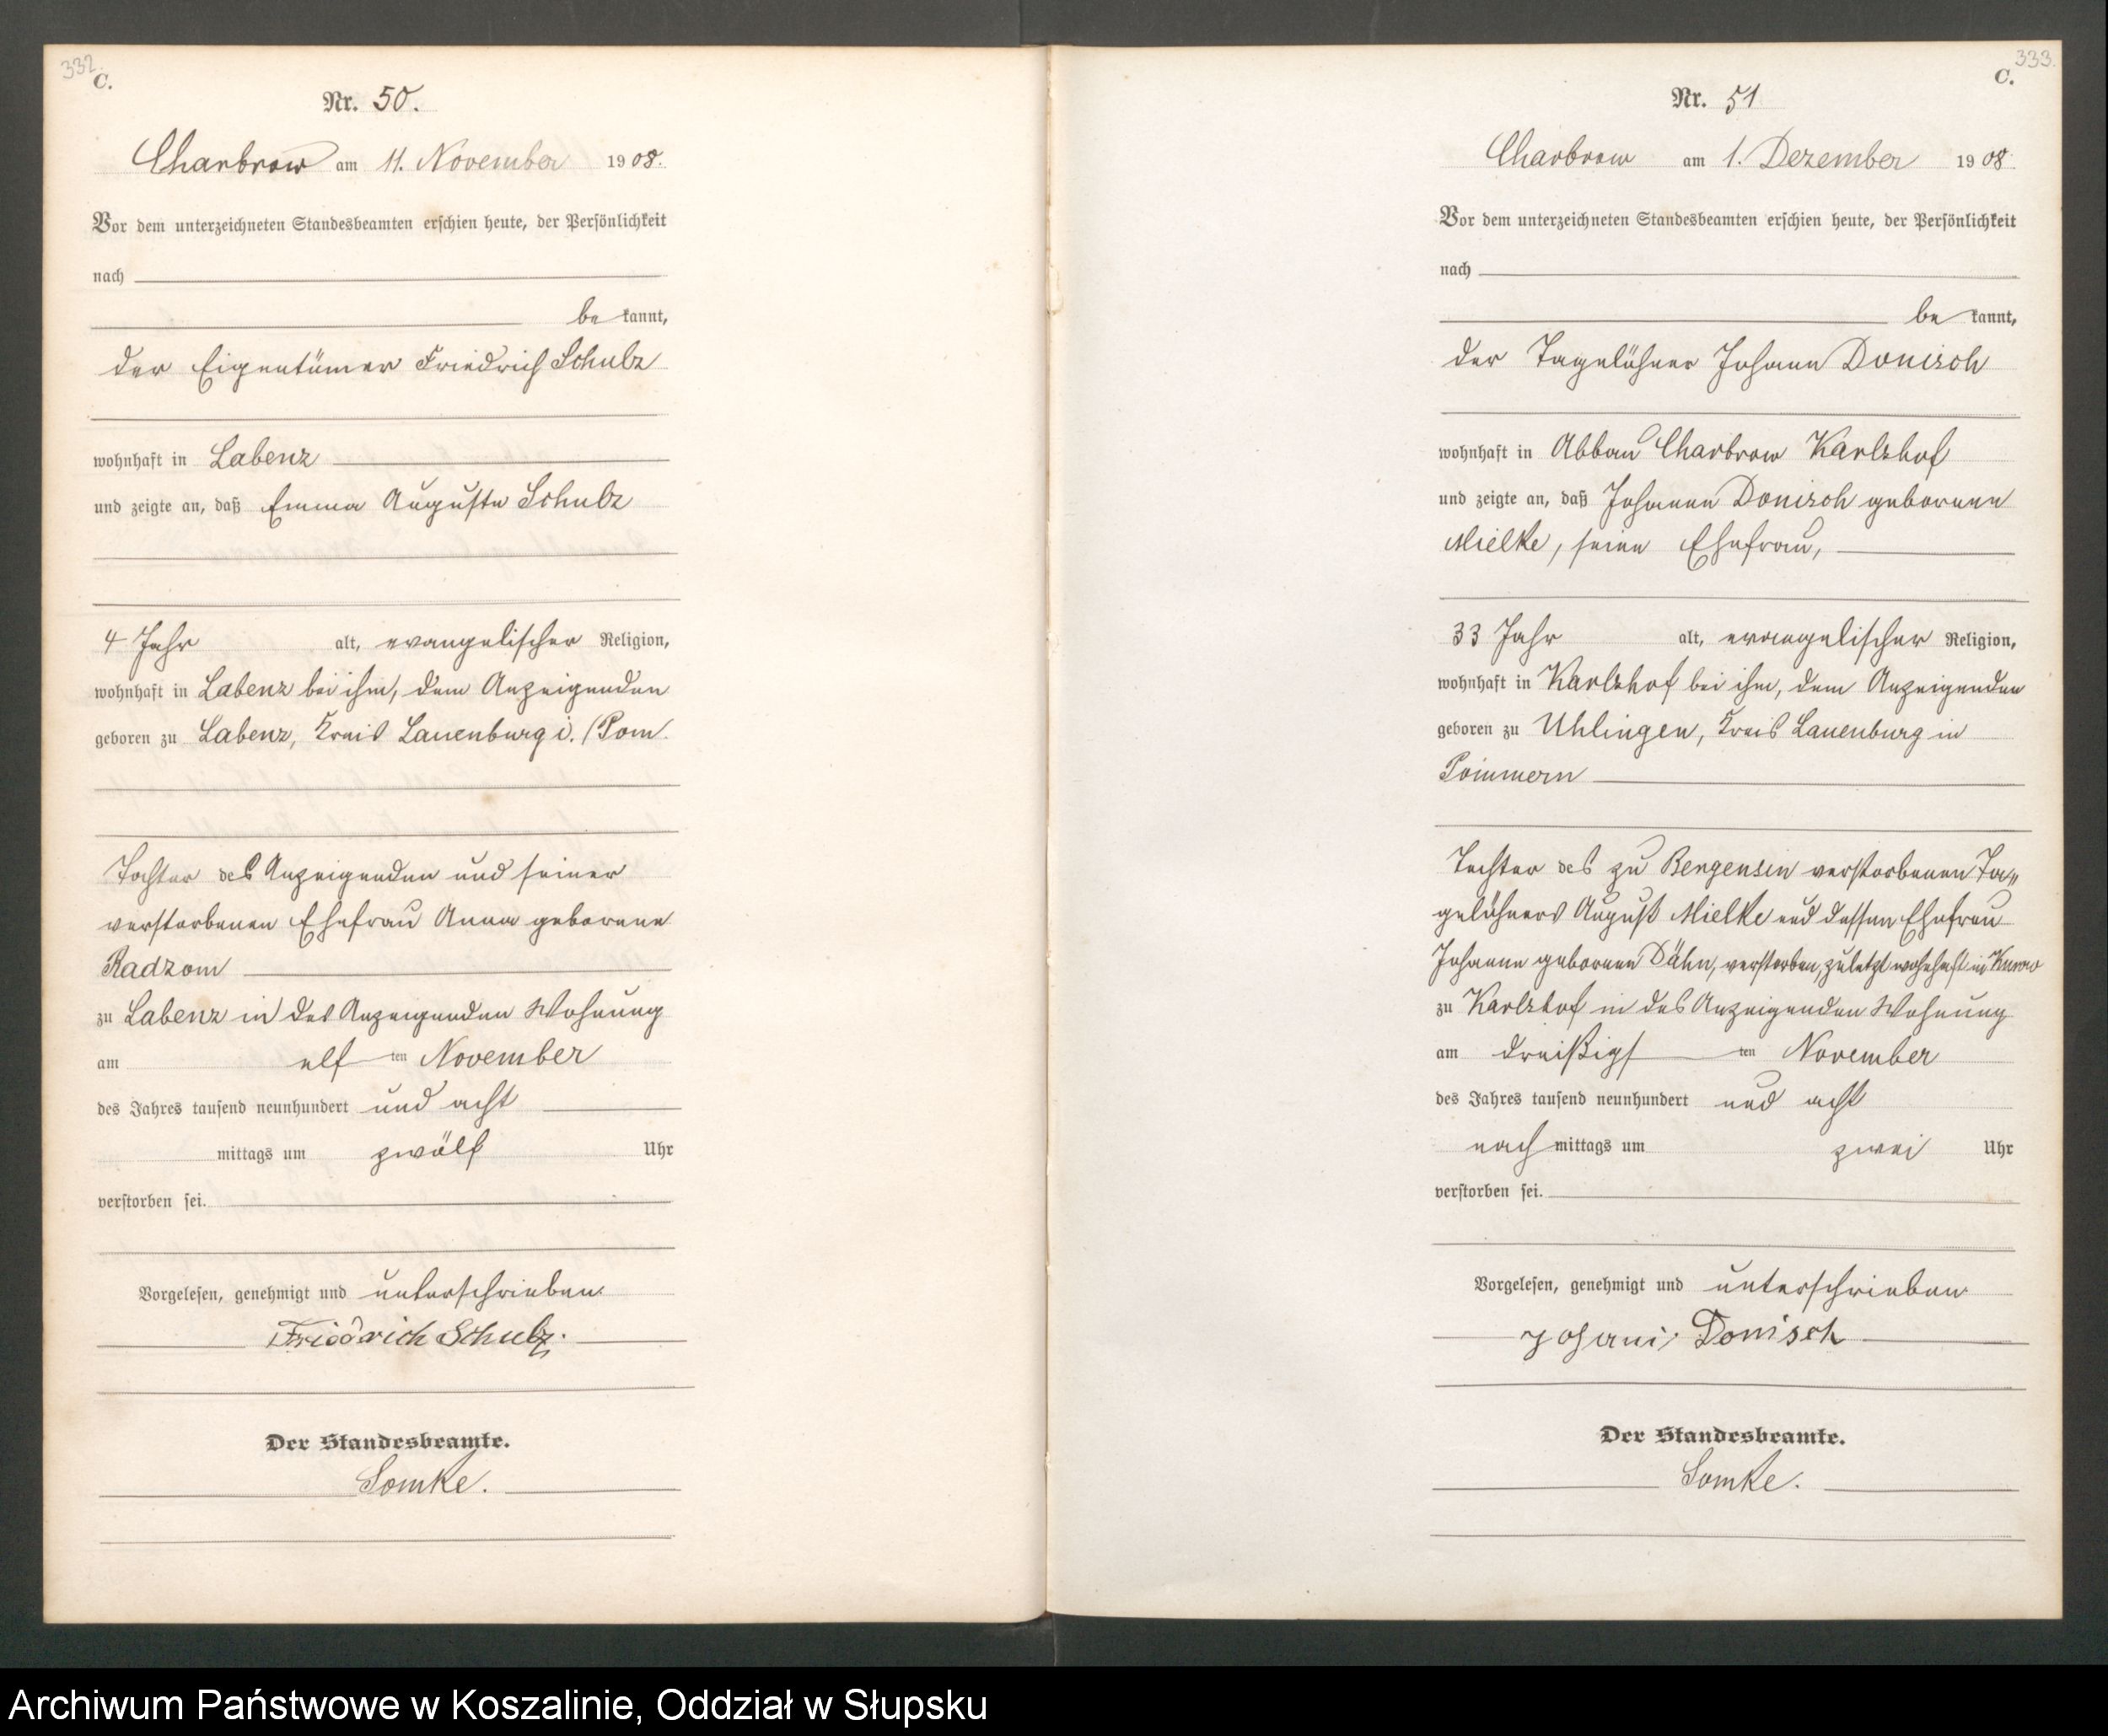 332.
C.
Nr. 50.
Charbrow am 11. November 1908.
Vor dem unterzeichneten Standesbeamten erschien heute, der Persönlichkeit
nach
be kannt,
der Eigentümer Friedrich Schulz
wohnhaft in Labenz
und zeigte an, daß Emma Auguste Schulz
4 Jahr alt, evangelischer Religion,
wohnhaft in Labenz bei ihm, dem Anzeigenden
geboren zu Labenz, Kreis Lauenburg i./Pom.
Tochter des Anzeigenden und seiner
verstorbenen Ehefrau Anna geborene
Radzom
zu Labenz in des Anzeigenden Wohnung
am elf ten November
des Jahres tausend neunhundert und acht
mittags um zwölf Uhr
verstorben sei.
Vorgelesen, genehmigt und unterschrieben.
Friedrich Schulz.
Der Standesbeamte.
Somke.
333.
C.
Nr. 51
Charbrow am 1. Dezember 1908.
Vor dem unterzeichneten Standesbeamten erschien heute, der Persönlichkeit
nach
be kannt,
der Tagelöhner Johann Donisch
wohnhaft in Abbau Charbrow Karlshof
und zeigte an, daß Johanne Donisch geborene
Mielke, seine Ehefrau,
33 Jahr alt, evangelischer Religion,
wohnhaft in Karlshof bei ihm, dem Anzeigenden
geboren zu Uhlingen, Kreis Lauenburg in
Pommern
Tochter des zu Bergensin verstorbenen Ta„
gelöhners August Mielke und dessen Ehefrau
Johanne geborenen Dähn, verstorben, zuletzt wohnhaft in
zu Karlshof in des Anzeigenden Wohnung
am dreißigs ten November
des Jahres tausend neunhundert und acht
nach mittags um zwei Uhr
verstorben sei.
Vorgelesen, genehmigt und unterschrieben
Johann Donisch
Der Standesbeamte.
Somke.
Archiwum Państwowe w Koszalinie, Oddział w Słupsku